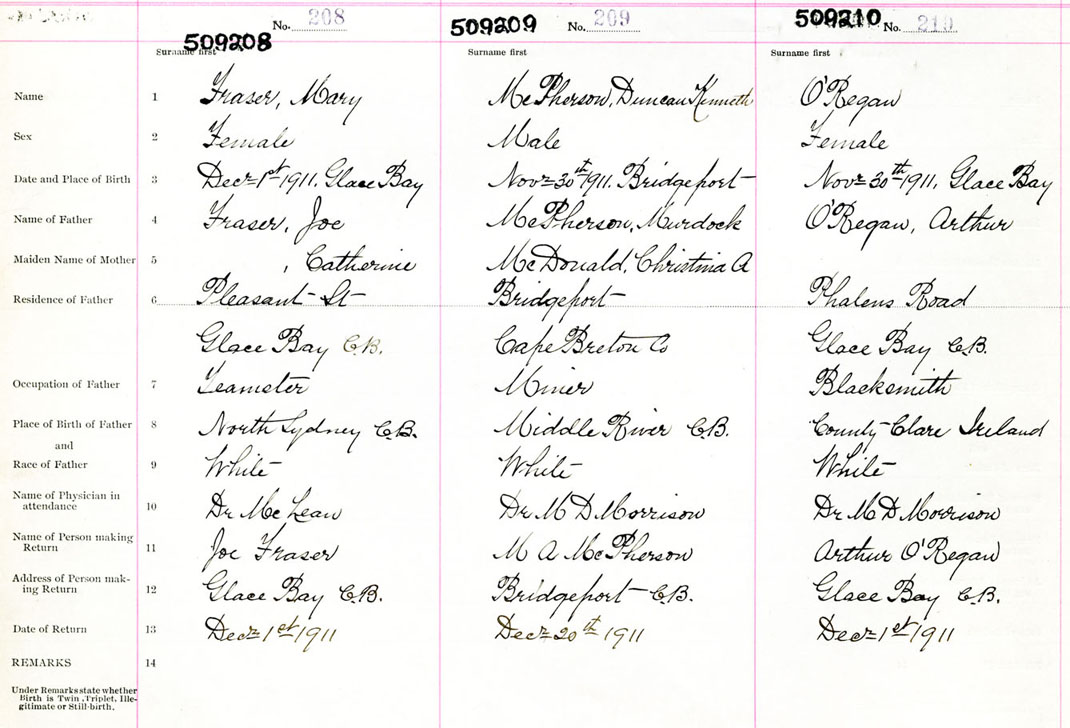 No. 208 509209 No. 209 509210 No. 210
509208
Surname first Surname first Surname first
Name 1 Fraser, Mary McPherson, Duncan Kenneth O'Regan
Sex 2 Female Male Female
Date and Place of Birth 3 Decr 1st 1911. Glace Bay Novr 30th 1911. Bridgeport Novr 30th 1911. Glace Bay
Name of Father 4 Fraser, Joe McPherson, Murdock O'Regan, Arthur
Maiden Name of Mother 5 , Catherine McDonald, Christina A
Residence of Father 6 Pleasant St Bridgeport Phalens Road
Glace Bay C.B. Cape Breton Co Glace Bay C.B.
Occupation of Father 7 Teamster Miner Blacksmith
Place of Birth of Father 8 North Sydney C.B. Middle River C.B. County Clare Ireland
and
Race of Father 9 White White White
Name of Physician in
attendance 10 Dr McLean Dr M D Morrison Dr M D Morrison
Name of Person making
Return 11 Joe Fraser M A McPherson Arthur O'Regan
Address of Person mak-
ing Return 12 Glace Bay C.B. Bridgeport C.B. Glace Bay C.B.
Date of Return 13 Decr 1st 1911 Decr 20th 1911 Decr 1st 1911
REMARKS 14
Under Remarks state whether
Birth is Twin, Triplet, Ille-
gitimate or Still-birth.